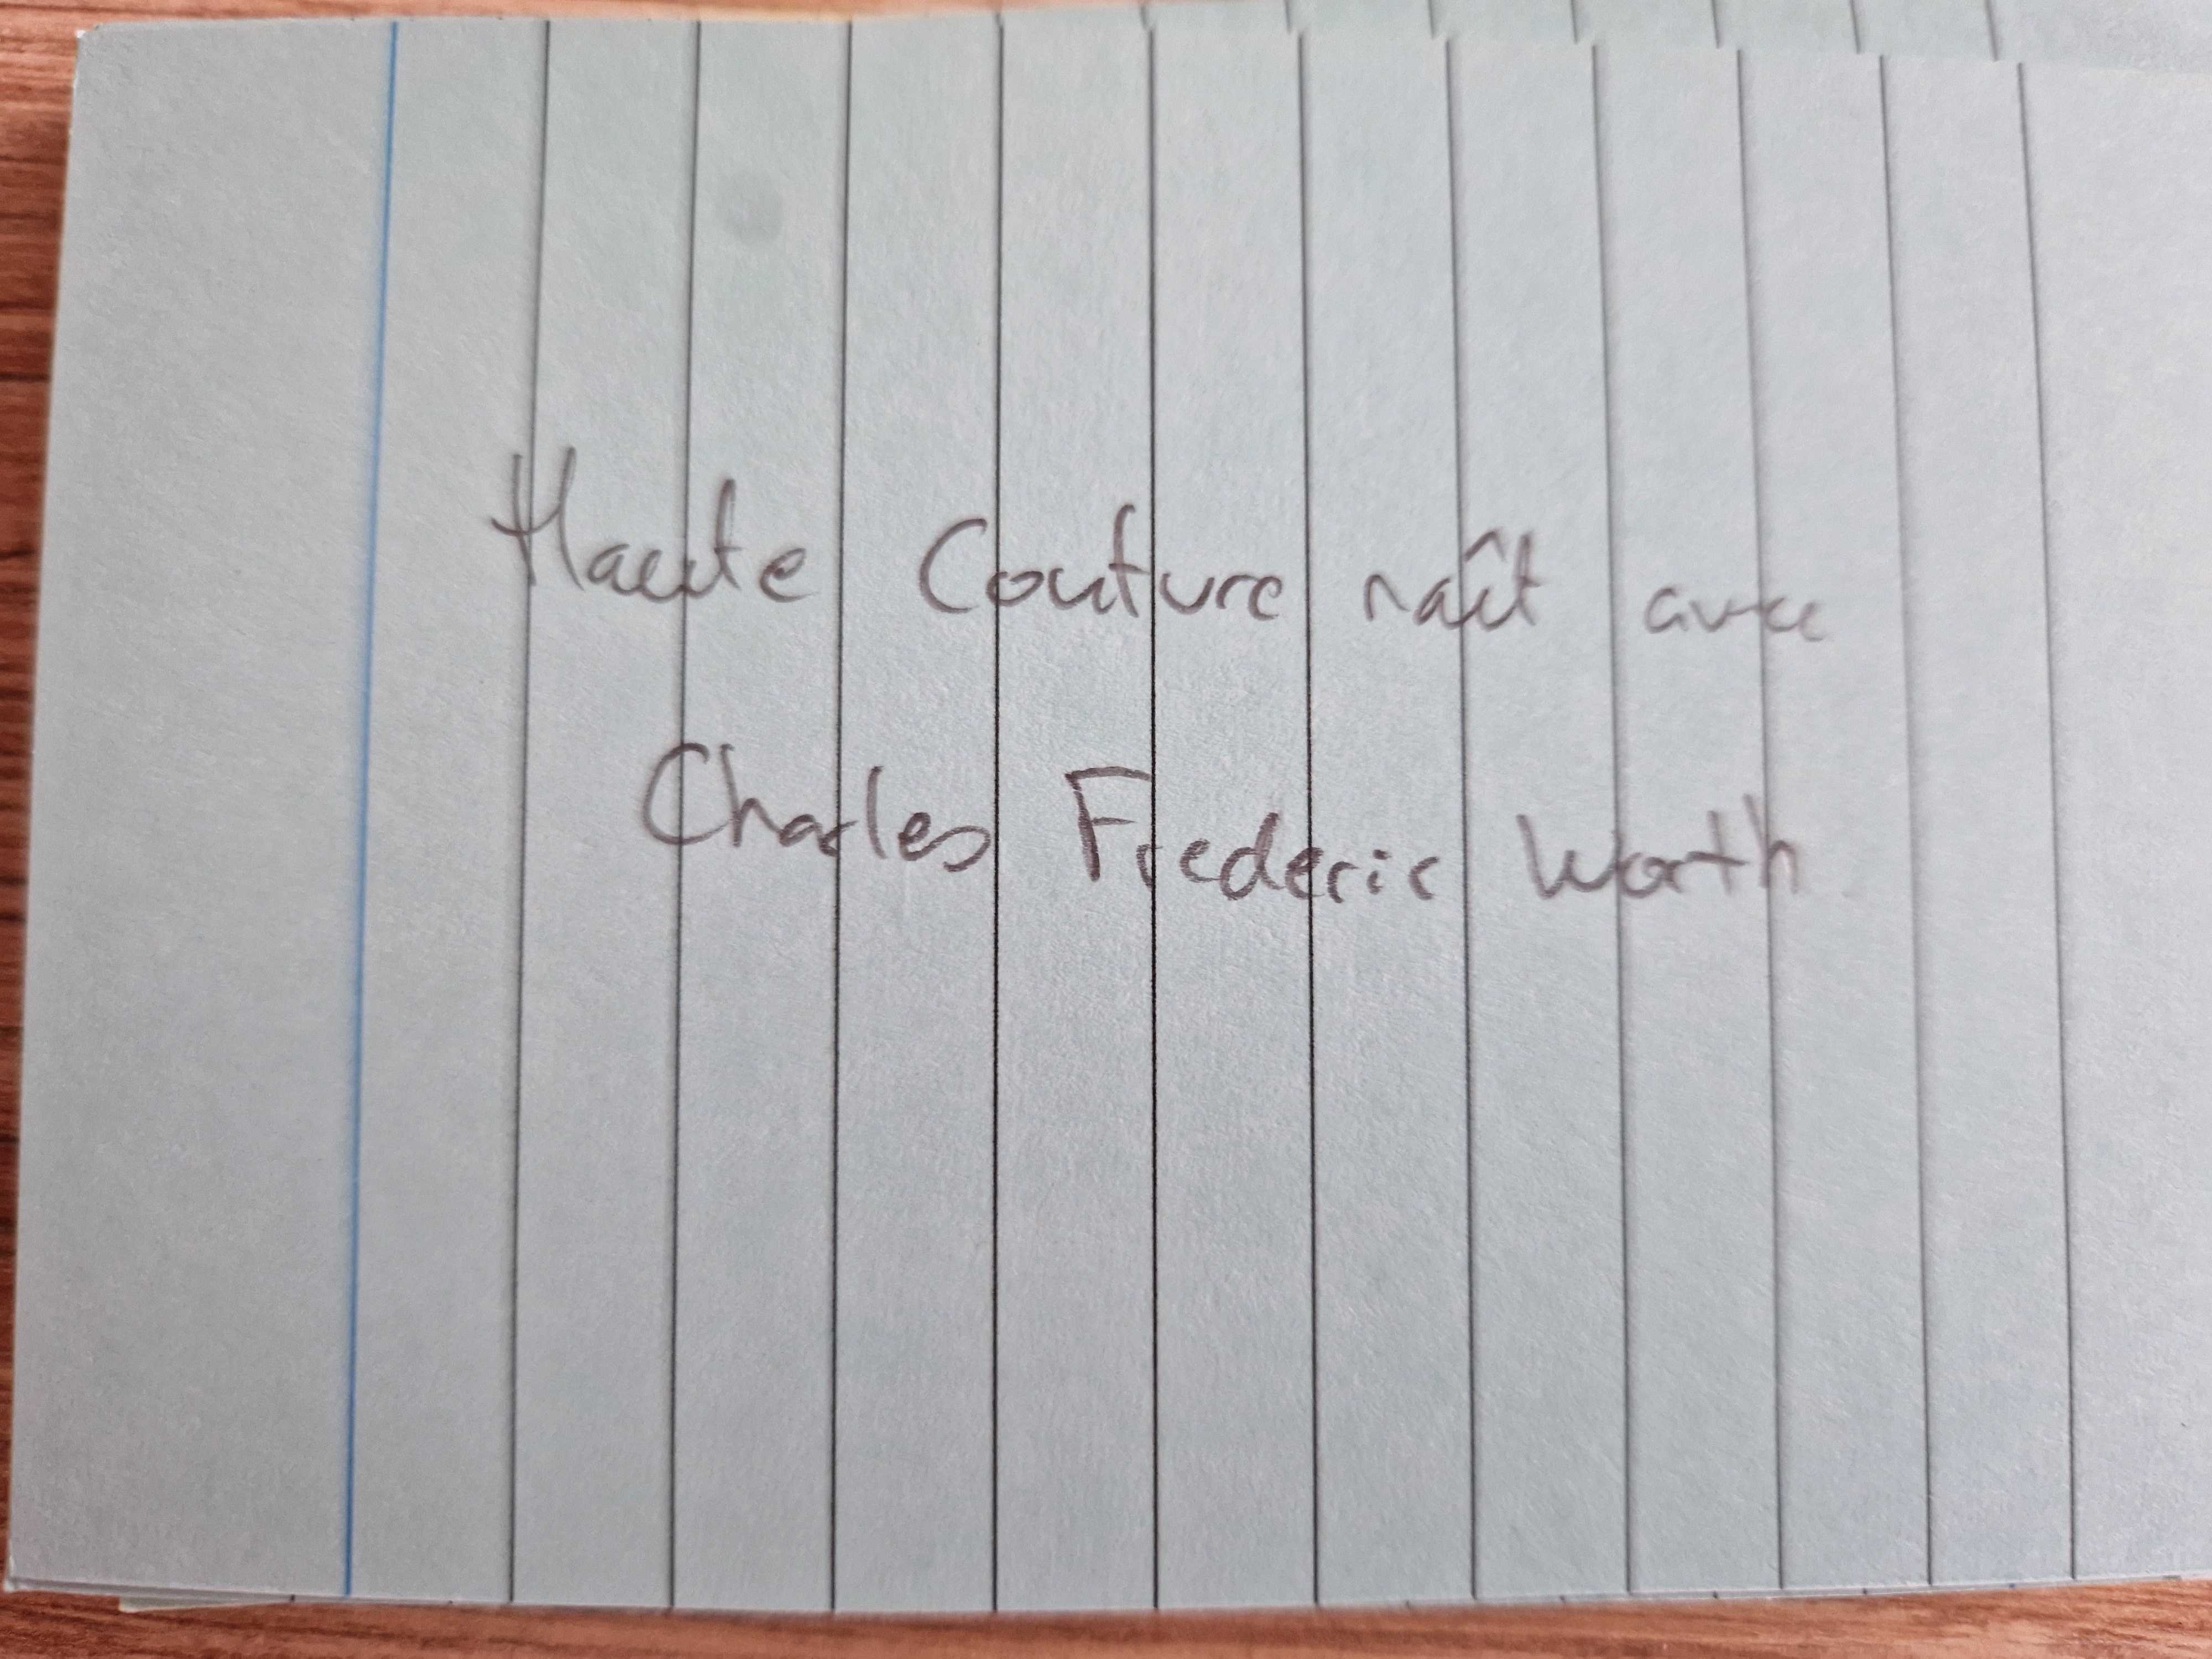 Haute Couture naît avec
Charles Frederic Worth